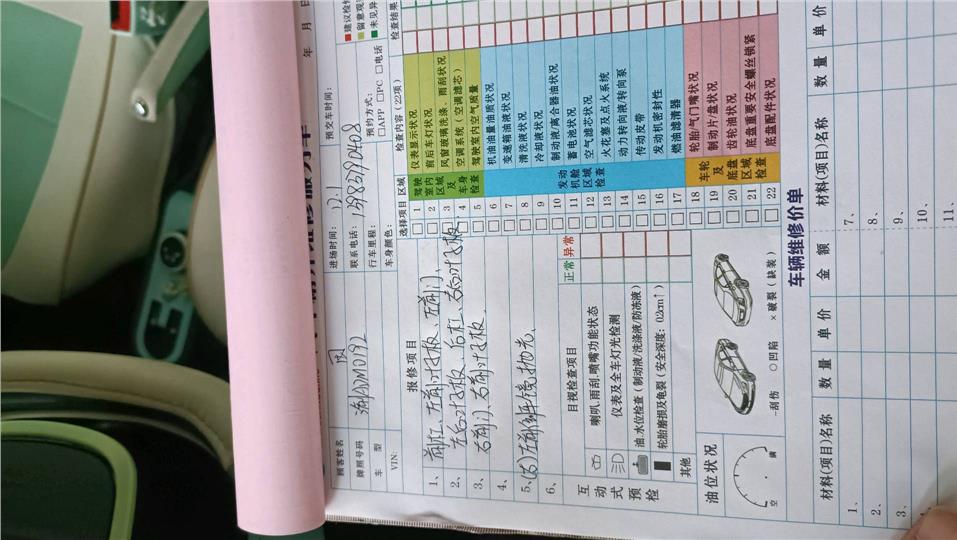 顾客姓名
进场时间： 12.1
预交车时间：
年 月 日
牌照号码
联系电话：
预约方式：
□APP □PC □电话
车 型
行车里程：
VIN：
车身颜色：
报修项目
选择项目
区域
检查内容（22项）
检查结果
1、前杠、左前叶子板、左前门、
2、左后叶子板、后杠、右后叶子板、
3、右前门、右前叶子板、
4、
5、
6、
驾驶室内区域及车身检查
1 仪表显示状况
2 前后车灯状况
3 风窗玻璃洗涤、雨刮状况
4 空调系统（空调滤芯）
5 驾驶室内空气质量
发动机舱区域检查
6 机油油量油质状况
7 变速箱油液状况
8 清洗液状况
9 冷却液状况
10 制动液/离合器油状况
11 蓄电池状况
12 空气滤芯状况
13 火花塞及点火系统
14 动力转向液/转向泵
15 传动皮带
16 发动机密封性
17 燃油滤清器
车轮及底盘区域检查
18 轮胎/气门嘴状况
19 制动片/盘状况
20 齿轮油状况
21 底盘重要安全螺丝锁紧
22 底盘配件状况
互动式预检
目视检查项目
正常
异常
喇叭、雨刮、喷嘴功能状态
仪表及全车灯光检测
油、水位检查（制动液/洗涤液/防冻液）
轮胎磨损及龟裂（安全深度：0.2cm↑）
其他
油位状况
空
满
-刮伤 ○凹陷 ×破裂（缺装）
车辆维修价单
材料(项目)名称
数 量
单 价
金 额
材料(项目)名称
数 量
单 价
1、
7、
2、
8、
3、
9、
10、
11、